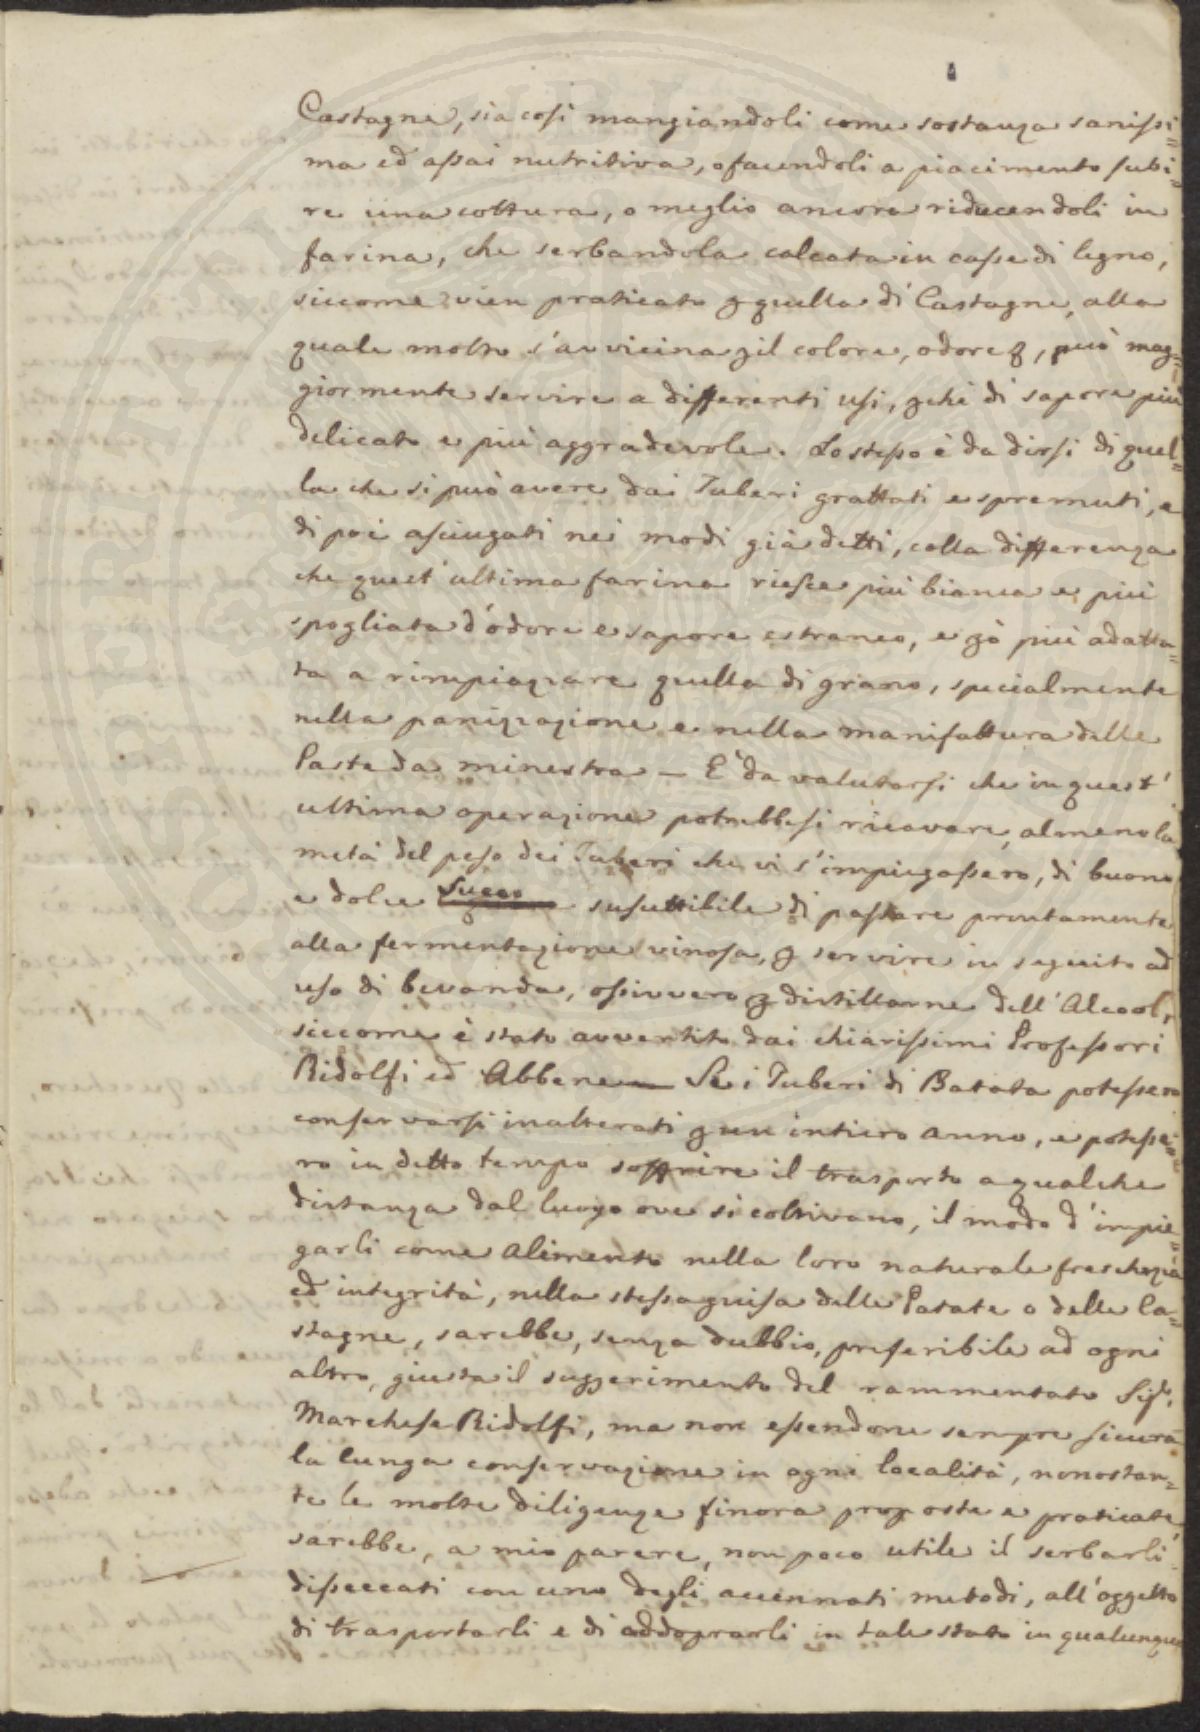 Castagne, sia così mangiandoli come sostanza sanissi=
ma ed assai nutritiva, o facendoli a piacimento subi=
re una cottura, o meglio ancora riducendoli in
farina, che serbandola calcata in casse di legno,
siccome vien praticato p quella di Castagne, alla
quale molto s'avvicina pil colore, odore &, può mag=
giormente servire a differenti usi, pchè di sapore più
delicato e più aggradevole. Lo stesso è da dirsi di quel=
la che si può avere dai Tuberi grattati e spremuti, e
di poi asciugati nei modi già detti, colla differenza
che quest' ultima farina riesce più bianca e più
spogliata d'odore e sapore estraneo, e pò più adatta=
ta a rimpiazzare quella di grano, specialmente
nella panizzazione e nella manifattura delle
Paste da minestra — E' da valutarsi che in quest'
ultima operazione potrebbesi ricavare, almeno la
metà del peso dei Tuberi che vi s'impiegassero, di buono
e dolce Succo suscettibile di passare prontamente
alla fermentazione vinosa, p servire in seguito ad
uso di bevanda, ossivvero p distillarne dell'Alcool,
siccome è stato avvertito dai chiarissimi Professori
Ridolfi ed Abbene — Se i Tuberi di Batata potessero
conservarsi inalterati p un intiero anno, e potesse=
ro in detto tempo soffrire il trasporto a qualche
distanza dal luogo ove si coltivano, il modo d'impie=
garli come Alimento nella loro naturale freschezza
ed integrità, nella stessa guisa delle Patate o delle Ca=
stagne, sarebbe, senza dubbio, preferibile ad ogni
altro, giusta il suggerimento del rammentato Sig.r
Marchese Ridolfi, ma non essendone sempre sicura
la lunga conservazione in ogni località, nonostan=
te le molte diligenze finora proposte e praticate,
sarebbe, a mio parere, non poco utile il serbarli
disseccati con uno degli accennati metodi, all'oggetto
di trasportarli e di addoprarli in tale stato in qualunque